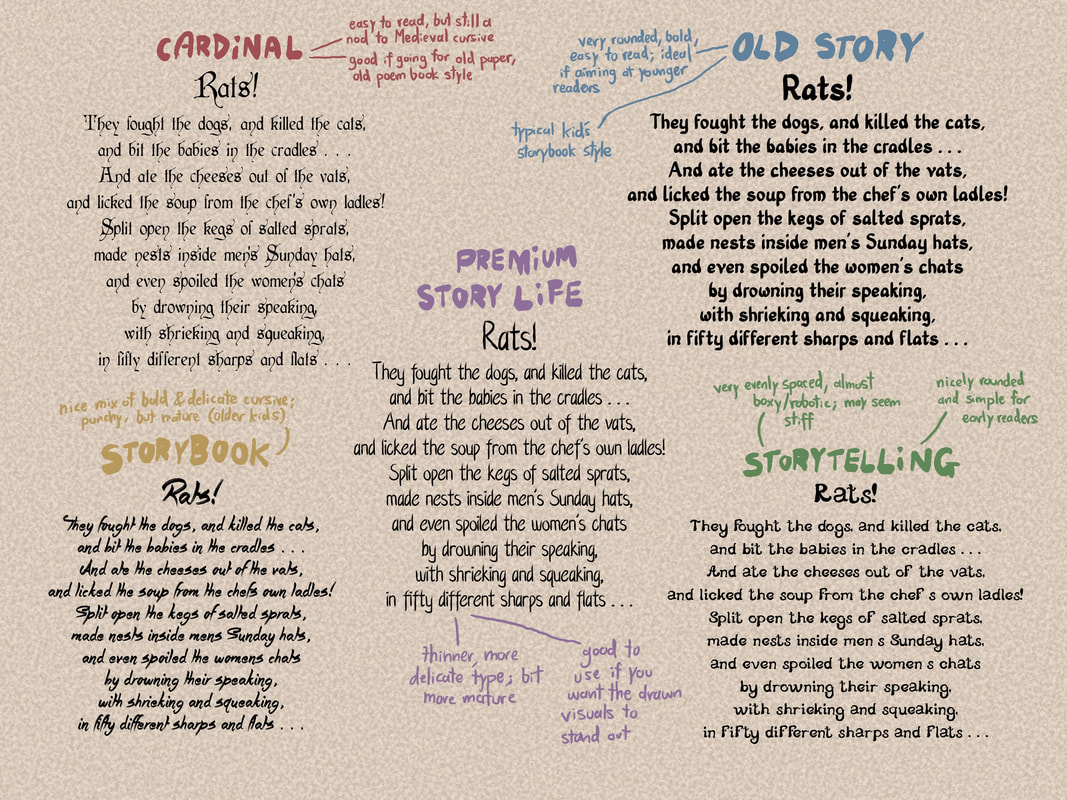 CARDINAL
easy to read, but still a
nod to Medieval cursive
good if going for old paper,
old poem book style
Rats!
They fought the dogs, and killed the cats,
and bit the babies in the cradles . . .
And ate the cheeses out of the vats,
and licked the soup from the chef's own ladles!
Split open the kegs of salted sprats,
made nests inside men's Sunday hats,
and even spoiled the women's chats
by drowning their speaking,
with shrieking and squeaking,
in fifty different sharps and flats . . .
OLD STORY
very rounded, bold,
easy to read; ideal
if aiming at younger
readers
typical kid's
storybook style
Rats!
They fought the dogs, and killed the cats,
and bit the babies in the cradles . . .
And ate the cheeses out of the vats,
and licked the soup from the chef's own ladles!
Split open the kegs of salted sprats,
made nests inside men's Sunday hats,
and even spoiled the women's chats
by drowning their speaking,
with shrieking and squeaking,
in fifty different sharps and flats . . .
PREMIUM
STORY LIFE
Rats!
They fought the dogs, and killed the cats,
and bit the babies in the cradles . . .
And ate the cheeses out of the vats,
and licked the soup from the chef's own ladles!
Split open the kegs of salted sprats,
made nests inside men's Sunday hats,
and even spoiled the women's chats
by drowning their speaking,
with shrieking and squeaking,
in fifty different sharps and flats . . .
thinner, more
delicate type; bit
more mature
good to
use if you
want the drawn
visuals to
stand out
nice mix of bold & delicate cursive;
punchy, but mature (older kids)
STORYBOOK
Rats!
They fought the dogs, and killed the cats,
and bit the babies in the cradles . . .
And ate the cheeses out of the vats,
and licked the soup from the chefs own ladles!
Split open the kegs of salted sprats,
made nests inside mens Sunday hats,
and even spoiled the womens chats
by drowning their speaking,
with shrieking and squeaking,
in fifty different sharps and flats . . .
very evenly spaced, almost
boxy/robotic; may seem
stiff
nicely rounded
and simple for
early readers
STORYTELLING
Rats!
They fought the dogs, and killed the cats,
and bit the babies in the cradles . . .
And ate the cheeses out of the vats,
and licked the soup from the chef s own ladles!
Split open the kegs of salted sprats,
made nests inside men s Sunday hats,
and even spoiled the women s chats
by drowning their speaking,
with shrieking and squeaking,
in fifty different sharps and flats . . .